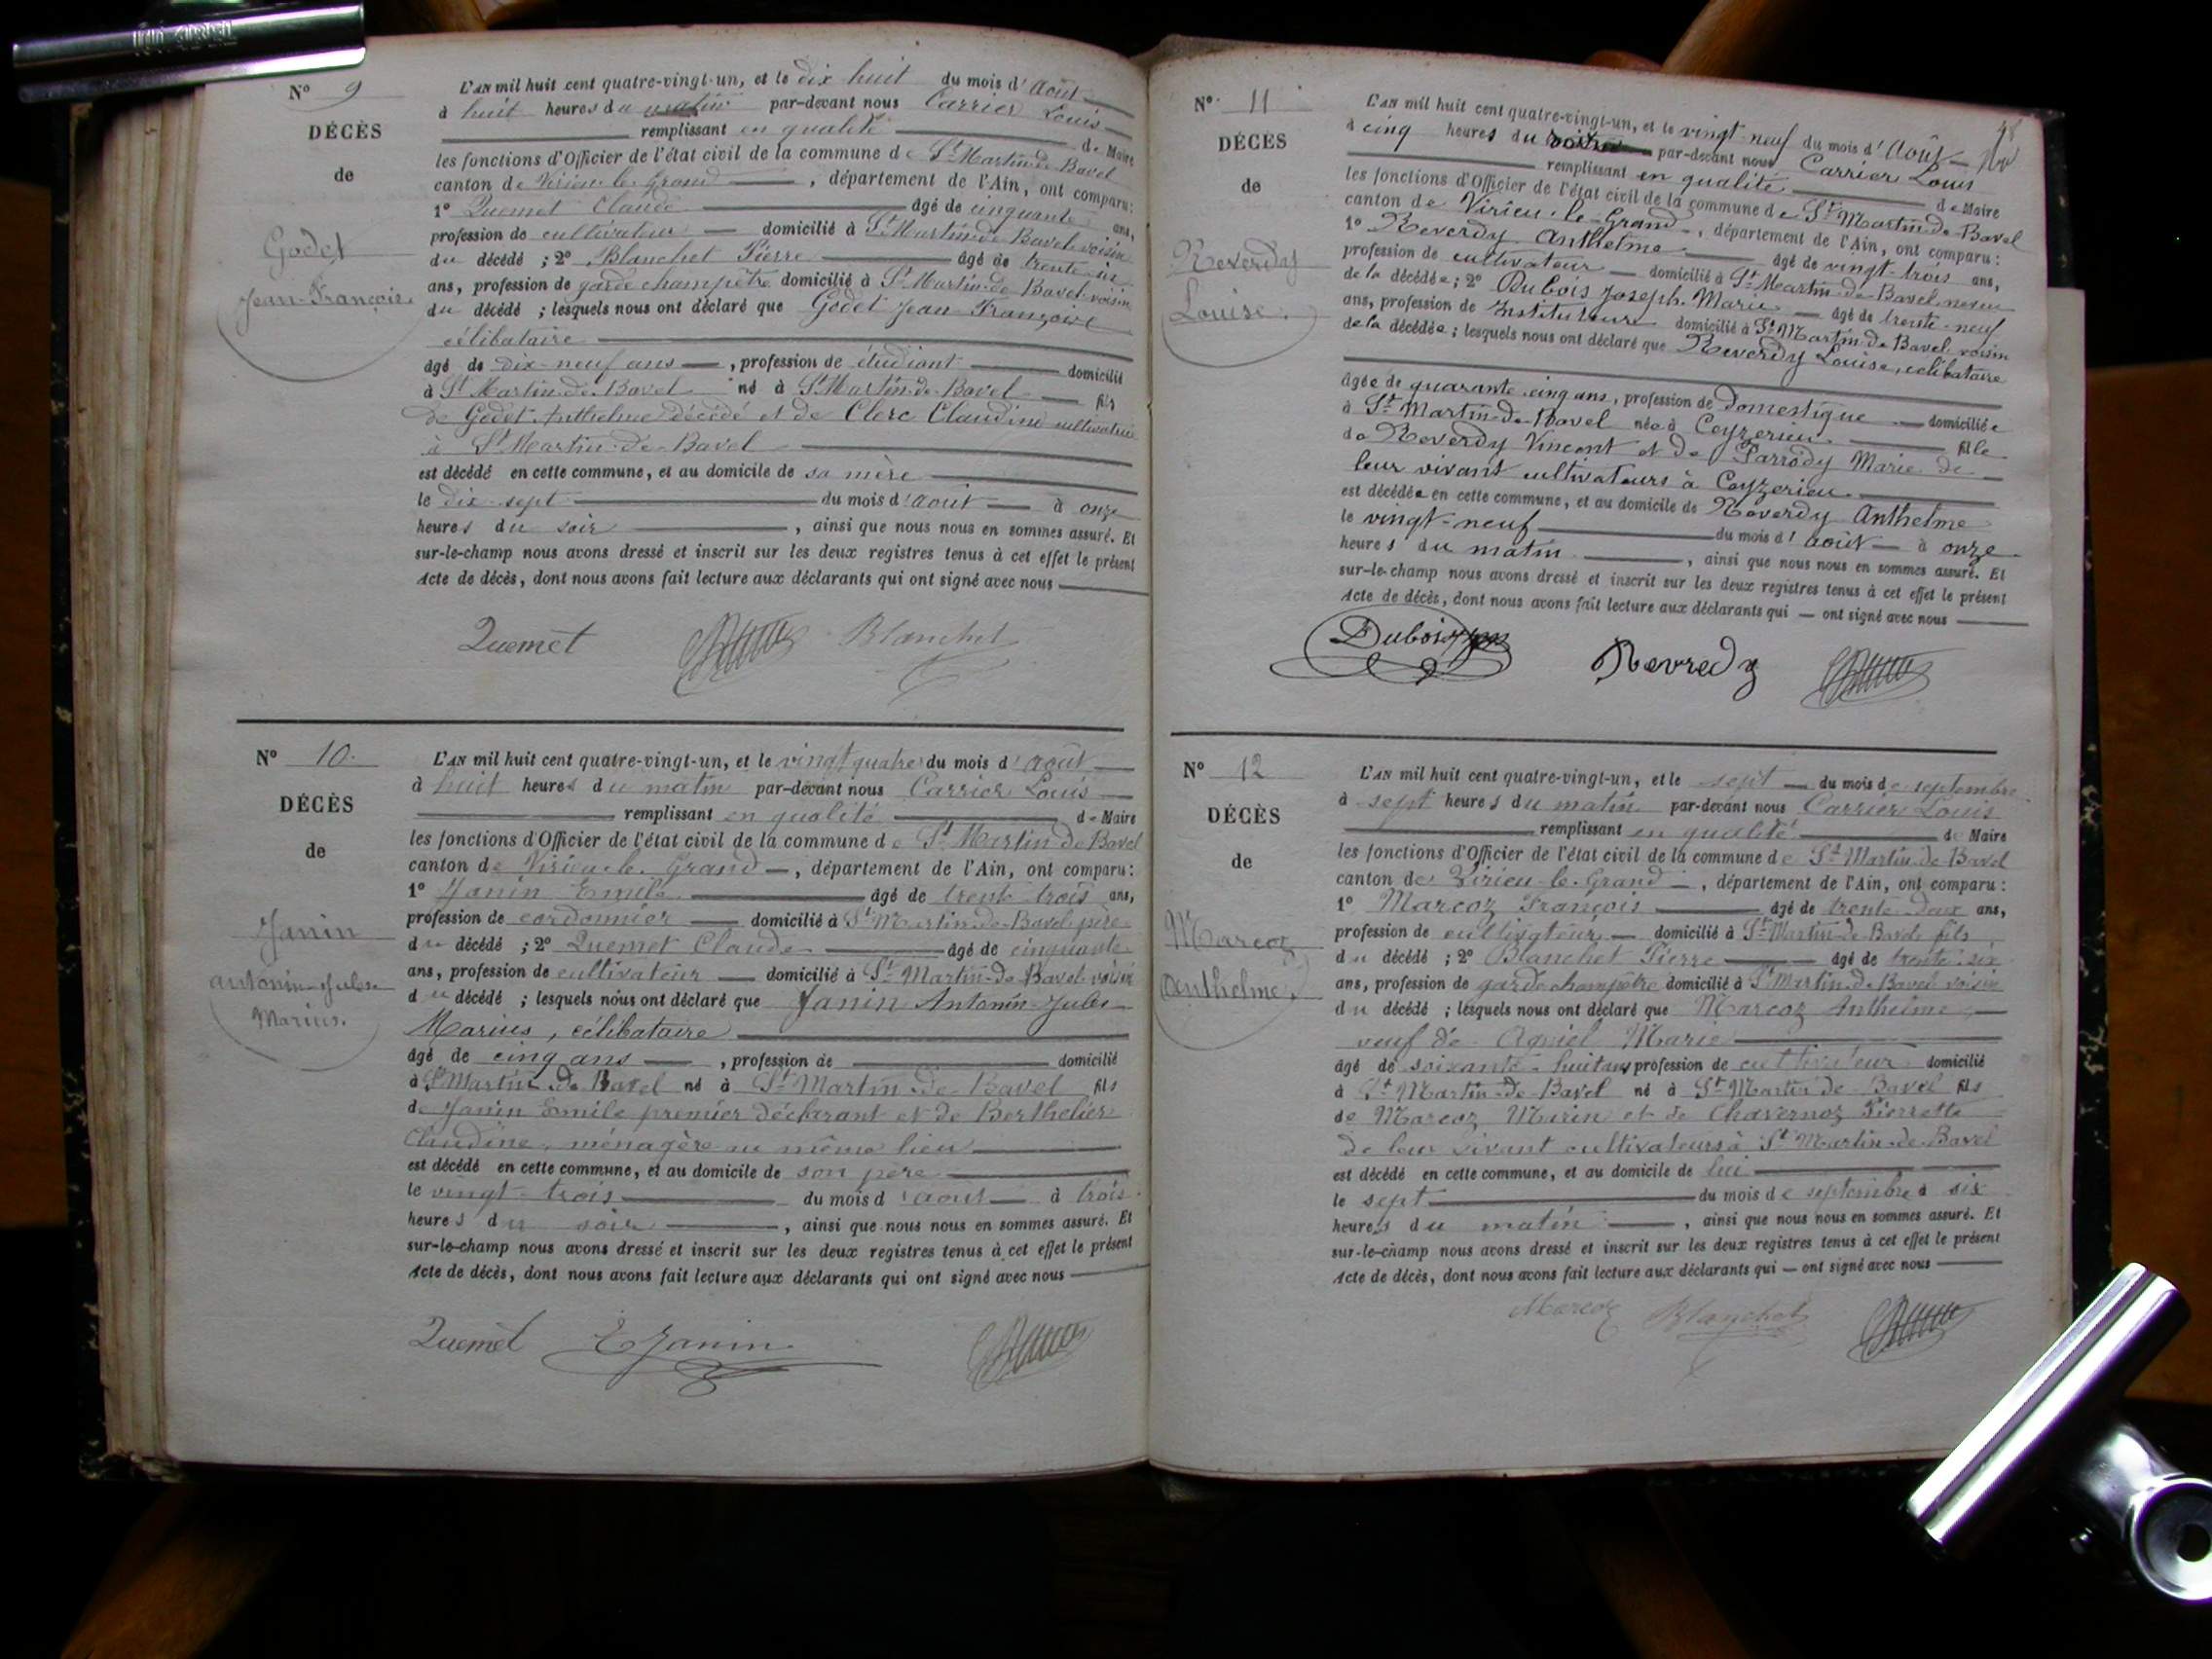 N° 9
DÉCÈS
de
Godet
Jean-François
L'AN mil huit cent quatre-vingt-un, et le dix huit du mois d'Août
à huit heures du matin par-devant nous Carrier Louis
remplissant en qualité de Maire
les fonctions d'Officier de l'état civil de la commune de St Martin-de Bavel
canton de Virieu-le-Grand, département de l'Ain, ont comparu:
1° Quemet Claude âgé de cinquante ans,
profession de cultivateur domicilié à St Martin-de Bavel voisin
du décédé ; 2° Blanchet Pierre âgé de trente six
ans, profession de garde champêtre domicilié à St Martin-de Bavel voisin
du décédé ; lesquels nous ont déclaré que Godet Jean François
célibataire
âgé de dix-neuf ans, profession de étudiant domicilié
à St Martin-de-Bavel né à St Martin-de-Bavel fils
de Godet Anthelme décédé et de Clerc Claudine cultivatrice
à St Martin-de-Bavel
est décédé en cette commune, et au domicile de sa mère
le dix-sept du mois d'août à onze
heures du soir, ainsi que nous nous en sommes assuré. Et
sur-le-champ nous avons dressé et inscrit sur les deux registres tenus à cet effet le présent
Acte de décès, dont nous avons fait lecture aux déclarants qui ont signé avec nous
Quemet Blanchet
N° 10.
DÉCÈS
de
Janin
antonin-Jules
Marius.
L'AN mil huit cent quatre-vingt-un, et le vingt quatre du mois d'août
à huit heures du matin par-devant nous Carrier Louis
remplissant en qualité de Maire
les fonctions d'Officier de l'état civil de la commune de St Martin de Bavel
canton de Virieu-le-Grand, département de l'Ain, ont comparu:
1° Janin Emile âgé de trente trois ans,
profession de cordonnier domicilié à St Martin-de-Bavel père
du décédé ; 2° Quemet Claude âgé de cinquante
ans, profession de cultivateur domicilié à St Martin-de Bavel voisin
du décédé ; lesquels nous ont déclaré que Janin Antonin-Jules
Marius, célibataire
âgé de cinq ans, profession de domicilié
à St Martin de Bavel né à St Martin-de-Bavel fils
de Janin Emile premier déclarant et de Berthelier
Claudine, ménagère au même lieu
est décédé en cette commune, et au domicile de son père
le vingt-trois du mois d'août à trois
heures du soir, ainsi que nous nous en sommes assuré. Et
sur-le-champ nous avons dressé et inscrit sur les deux registres tenus à cet effet le présent
Acte de décès, dont nous avons fait lecture aux déclarants qui ont signé avec nous
Quemet E Janin
48
N° 11
DÉCÈS
de
Reverdy
Louise.
L'AN mil huit cent quatre-vingt-un, et le vingt-neuf du mois d'Août
à cinq heures du par-devant nous Carrier Louis
remplissant en qualité de Maire
les fonctions d'Officier de l'état civil de la commune de St Martin-de-Bavel
canton de Virieu-le-Grand, département de l'Ain, ont comparu :
1° Reverdy Anthelme âgé de vingt-trois ans,
profession de cultivateur domicilié à St Martin-de-Bavel neveu
de la décédée ; 2° Dubois Joseph-Marie âgé de trente-neuf
ans, profession de Instituteur domicilié à St Martin-de-Bavel voisin
de la décédée ; lesquels nous ont déclaré que Reverdy Louise, célibataire
âgée de quarante-cinq ans, profession de Domestique domiciliée
à St Martin-de-Bavel née à Ceyzerieu fille
de Reverdy Vincent et de Parrody Marie de
leur vivant cultivateurs à Ceyzerieu
est décédée en cette commune, et au domicile de Reverdy Anthelme
le vingt-neuf du mois d'août à onze
heures du matin, ainsi que nous nous en sommes assuré. Et
sur-le-champ nous avons dressé et inscrit sur les deux registres tenus à cet effet le présent
Acte de décès, dont nous avons fait lecture aux déclarants qui ont signé avec nous
Dubois Revredy
N° 12
DÉCÈS
de
Marcoz
Anthelme.
L'AN mil huit cent quatre-vingt-un, et le sept du mois de septembre
à sept heures du matin par-devant nous Carrier Louis
remplissant en qualité de Maire
les fonctions d'Officier de l'état civil de la commune de St Martin-de-Bavel
canton de Virieu-le-Grand, département de l'Ain, ont comparu :
1° Marcoz François âgé de trente-deux ans,
profession de cultivateur domicilié à St Martin-de-Bavel fils
du décédé ; 2° Blanchet Pierre âgé de trente-six
ans, profession de garde champêtre domicilié à St Martin-de-Bavel voisin
du décédé ; lesquels nous ont déclaré que Marcoz Anthelme,
veuf de Marie
âgé de soixante-huit ans profession de cultivateur domicilié
à St Martin-de-Bavel né à St Martin de-Bavel fils
de Marcoz et de Chavernoz Pierrette
de leur vivant cultivateurs à St Martin-de-Bavel
est décédé en cette commune, et au domicile de lui
le sept du mois de septembre à six
heures du matin, ainsi que nous nous en sommes assuré. Et
sur-le-champ nous avons dressé et inscrit sur les deux registres tenus à cet effet le présent
Acte de décès, dont nous avons fait lecture aux déclarants qui ont signé avec nous
Marcoz Blanchet